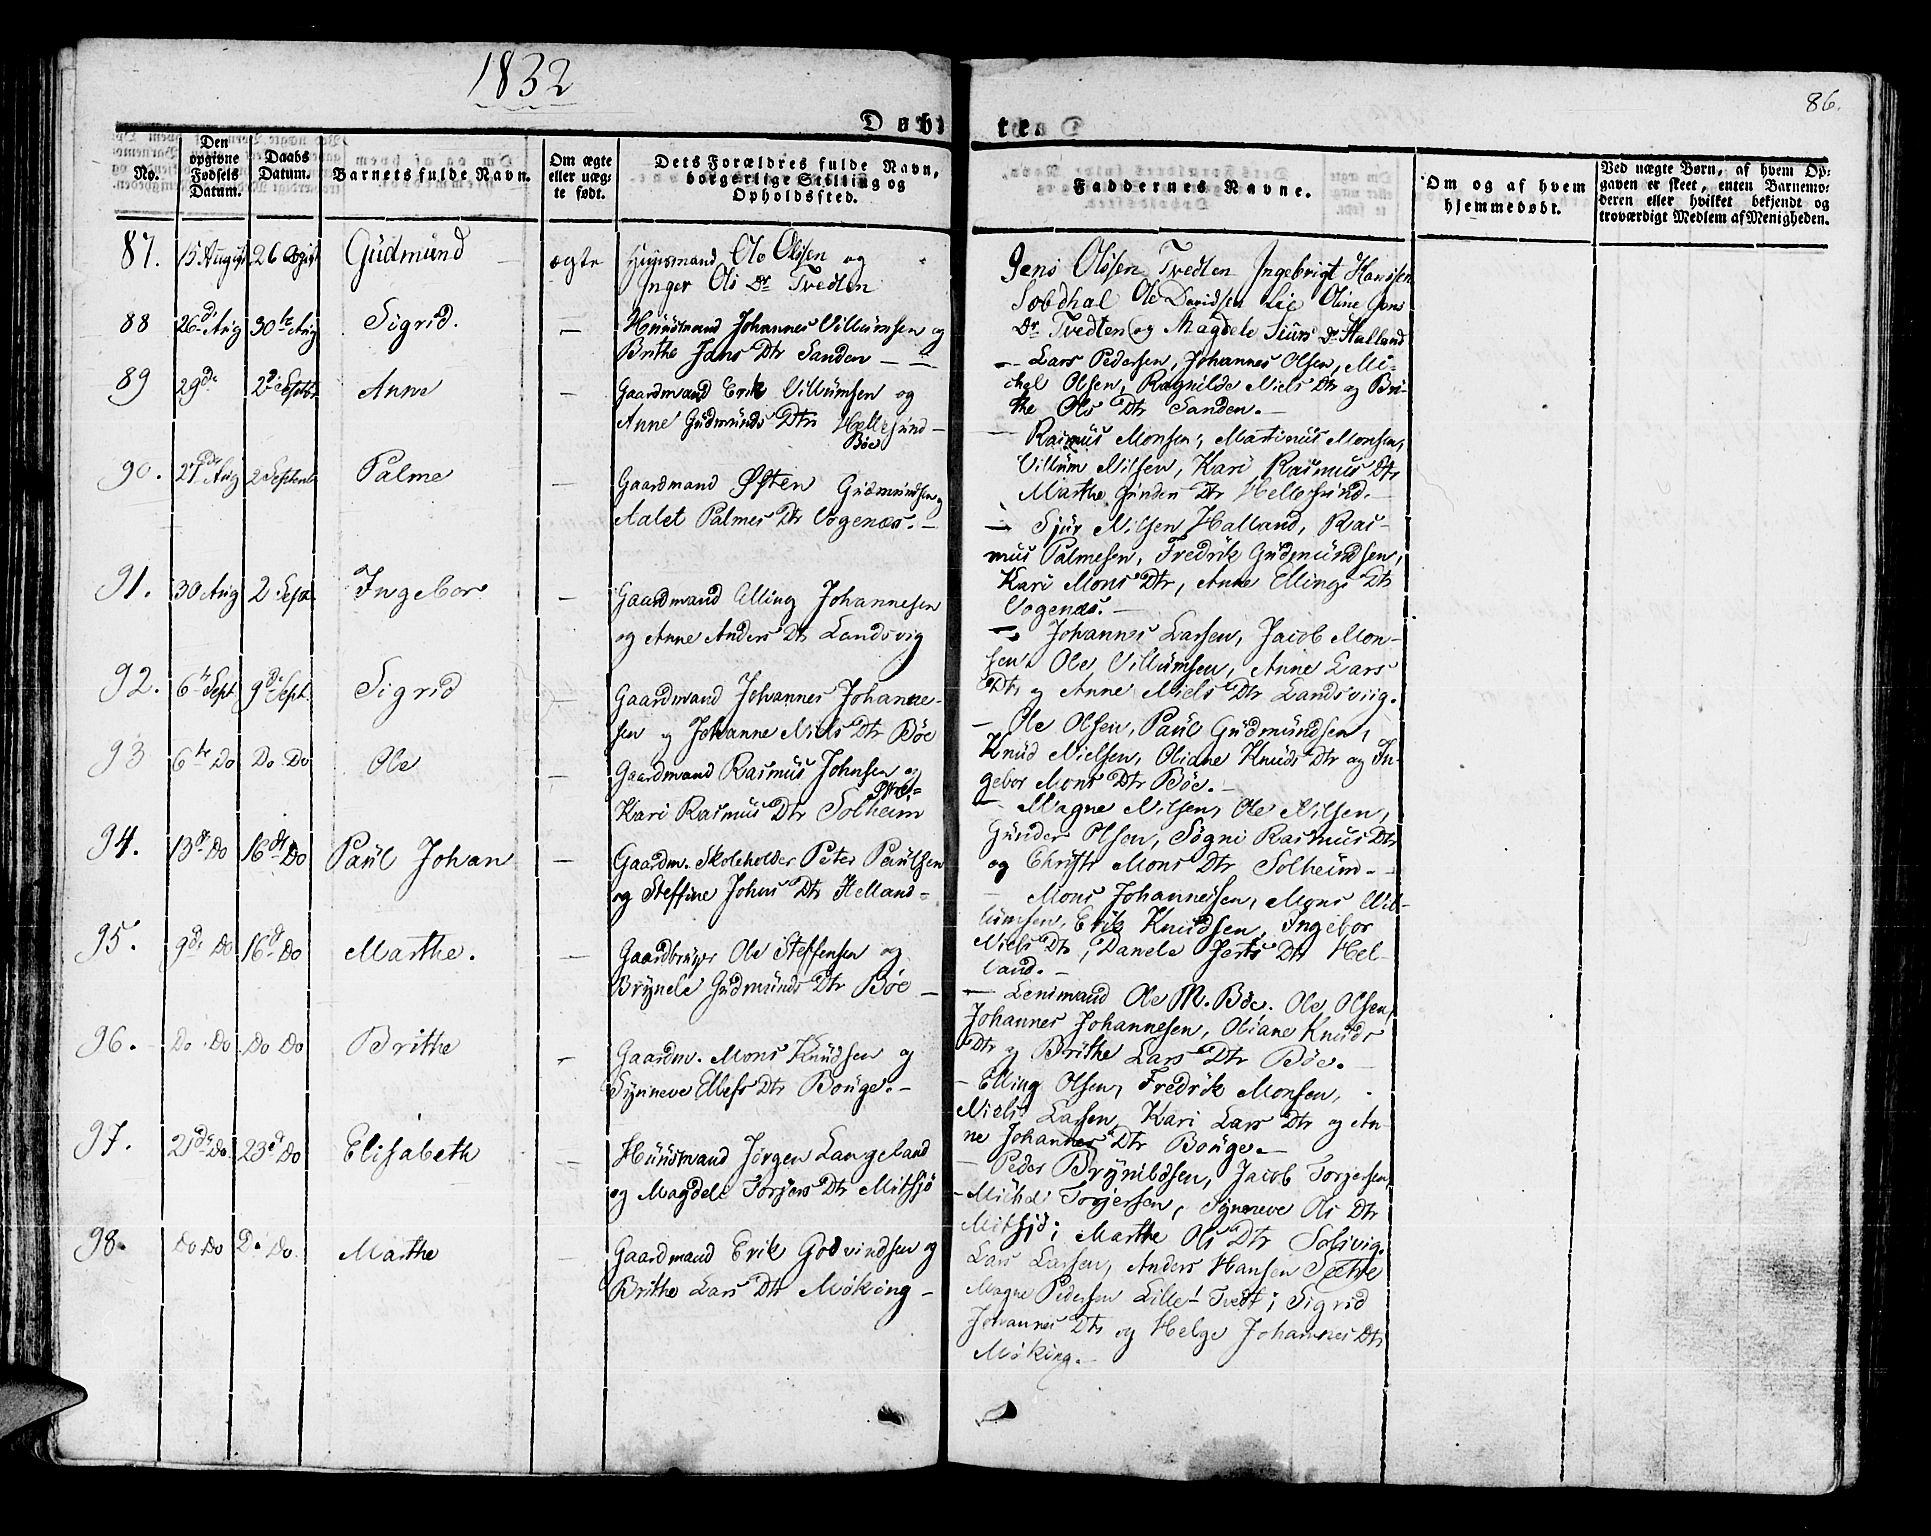 1832
86.
Døbte.
No.
Den opgivne Fødsels Datum.
Daabs Datum.
Barnets fulde Navn.
Om ægte eller uægte født.
Dets Forældres fulde Navn, borgerlige Stilling og Opholdssted.
Faddernes Navne.
Om og af hvem hjemmedøbt.
Ved uægte Børn, af hvem Opgaven er skeet, enten Barnemoderen eller hvilket bekjendt og troværdigt Medlem af Menigheden.
87. 15 August 26 August Gudmund ægte Huusmand Ole Olssen og
Inger Ols Dr Tvedten
Jens Olssen Tvedten Ingebrigt Hanssen
Ole Davidsen Lie Oline Jens
Dr Tvedten og Magdele Siurs Dr Halland
88 26de Aug 30te Aug Sigrid. — Huusmand Johannes Villumsen og
Brithe Jans Dtr Sanden —
— Lars Pedersen, Johannes Olsen, Mi-
chel Olsen, Ragnilde Niels Dtr og Bri-
the Ols Dtr Sanden. —
89 29de 2de Septbr Anne — Gaardmand Erik Villumsen og
Anne Gudmunds Dtr Hellesund —
Böe
— Rasmus Monsen, Martinus Monsen,
Villum Nilsen, Kari Rasmus Dtr
Marthe Gunders Dtr Hellesund. —
90. 27de Aug 2 Septemb Palme — Gaardmand Østen Gudmundsen og
Aalet Palmes Dtr Vogenæs. —
— Sjur Nilsen Halland, Ras-
mus Palmesen, Fredrik Gudmundsen,
Kari Mons Dtr, Anne Ellings Dtr
Vogenæs. —
91. 30 Aug 2 Sept Ingebor — Gaardmand Elling Johannesen
og Anne Anders Dtr Landsvig
— Johannes Larsen, Jacob Mon-
sen, Ole Villumsen, Anne Lars
Dtr og Anne Niels Dtr Landsviig.
92. 6te Sept 9de Sept. Sigrid — Gaardmand Johannes Johanne-
sen og Johanne Niels Dtr Böe
— Ole Olsen, Paul Gudmundsen,
Knud Nielsen, Oliane Knuds Dtr og In-
gebor Mons Dtr Böe. —
93 6te Do Do Do Ole — Gaardmand Rasmus Johnsen og
Kari Rasmus Dtr Solheim
— Magne Nilsen, Ole Nilsen,
Gunder Olsen, Søgni Rasmus Dtr
og Christi Mons Dtr Solheim. —
94. 13de Do 16de Do Paul Johan — Gaardm. Skoleholder Peter Paulsen
og Steffine Johns Dtr Helland —
— Mons Johannessen, Mons Vil-
lumsen, Erik Knudsen, Ingebor
Niels Dtr, Danele Dtr Hel-
land. —
95. 9de Do 16de Do Marthe. — Gaardbruger Ole Steffensen og
Brynele Gudmunds Dtr Böe —
— Lensmand Ole M. Böe. Ole Olsen,
Johannes Johannesen, Oliane Knuds
Dtr og Brithe Lars Dtr Böe. —
96. Do Do Do Do Brithe — Gaardm. Mons Knudsen og
Synneve Dtr Bouge. —
— Elling Olsen, Fredrik Monsen,
Niels Larsen, Kari Lars Dtr og An-
ne Johannes Dtr Bouge. —
97. 21de Do 23de Do Elisabeth — Huusmand Jörgen Langeland
og Magdele Torgers Dtr Mitsjö
— Peder Brynildsen, Jacob Torgersen,
— Torgersen, Synneve Ols Dtr
Mitsjö; Marthe Ols Dtr Solsvig.
98. Do Do Do Do. Marthe — Gaardmand Erik Godvindsen og
Brithe Lars Dtr Møking —
Lars Larsen, Anders Hansen Sætre
Magne Pedersen Lille-Tvedt; Sigrid
Johannes Dtr og Helge Johannes Dtr
Møking. —